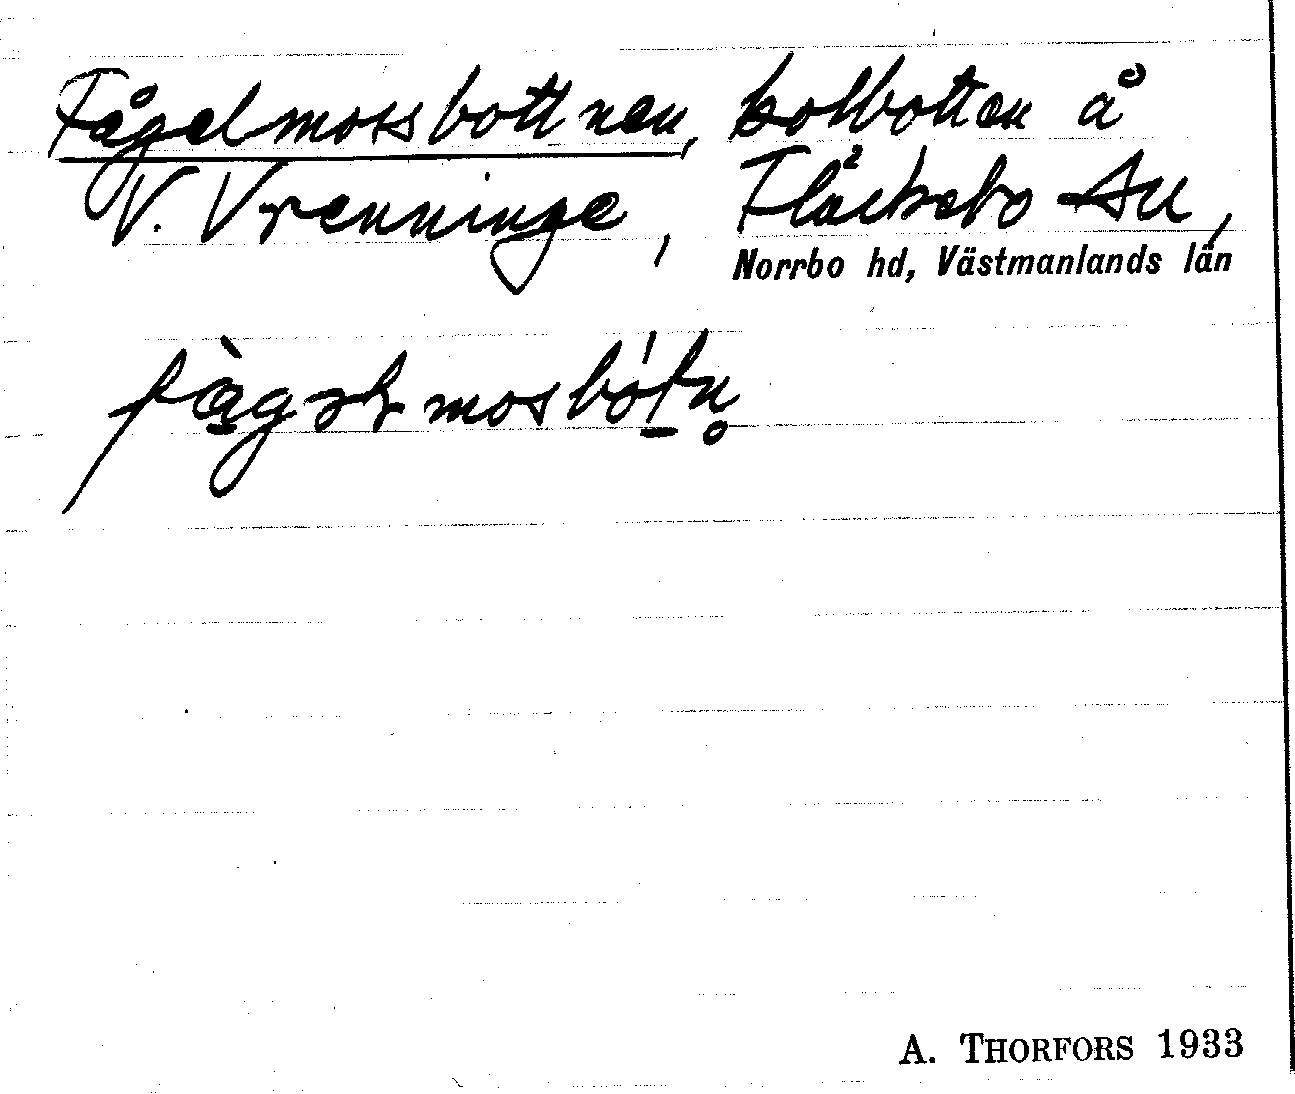 Fågelmossbottnen, kolbotten å
V. Vrenninge, Fläckebo sn,
Norrbo hd, Västmanlands län
A. THORFORS 1933